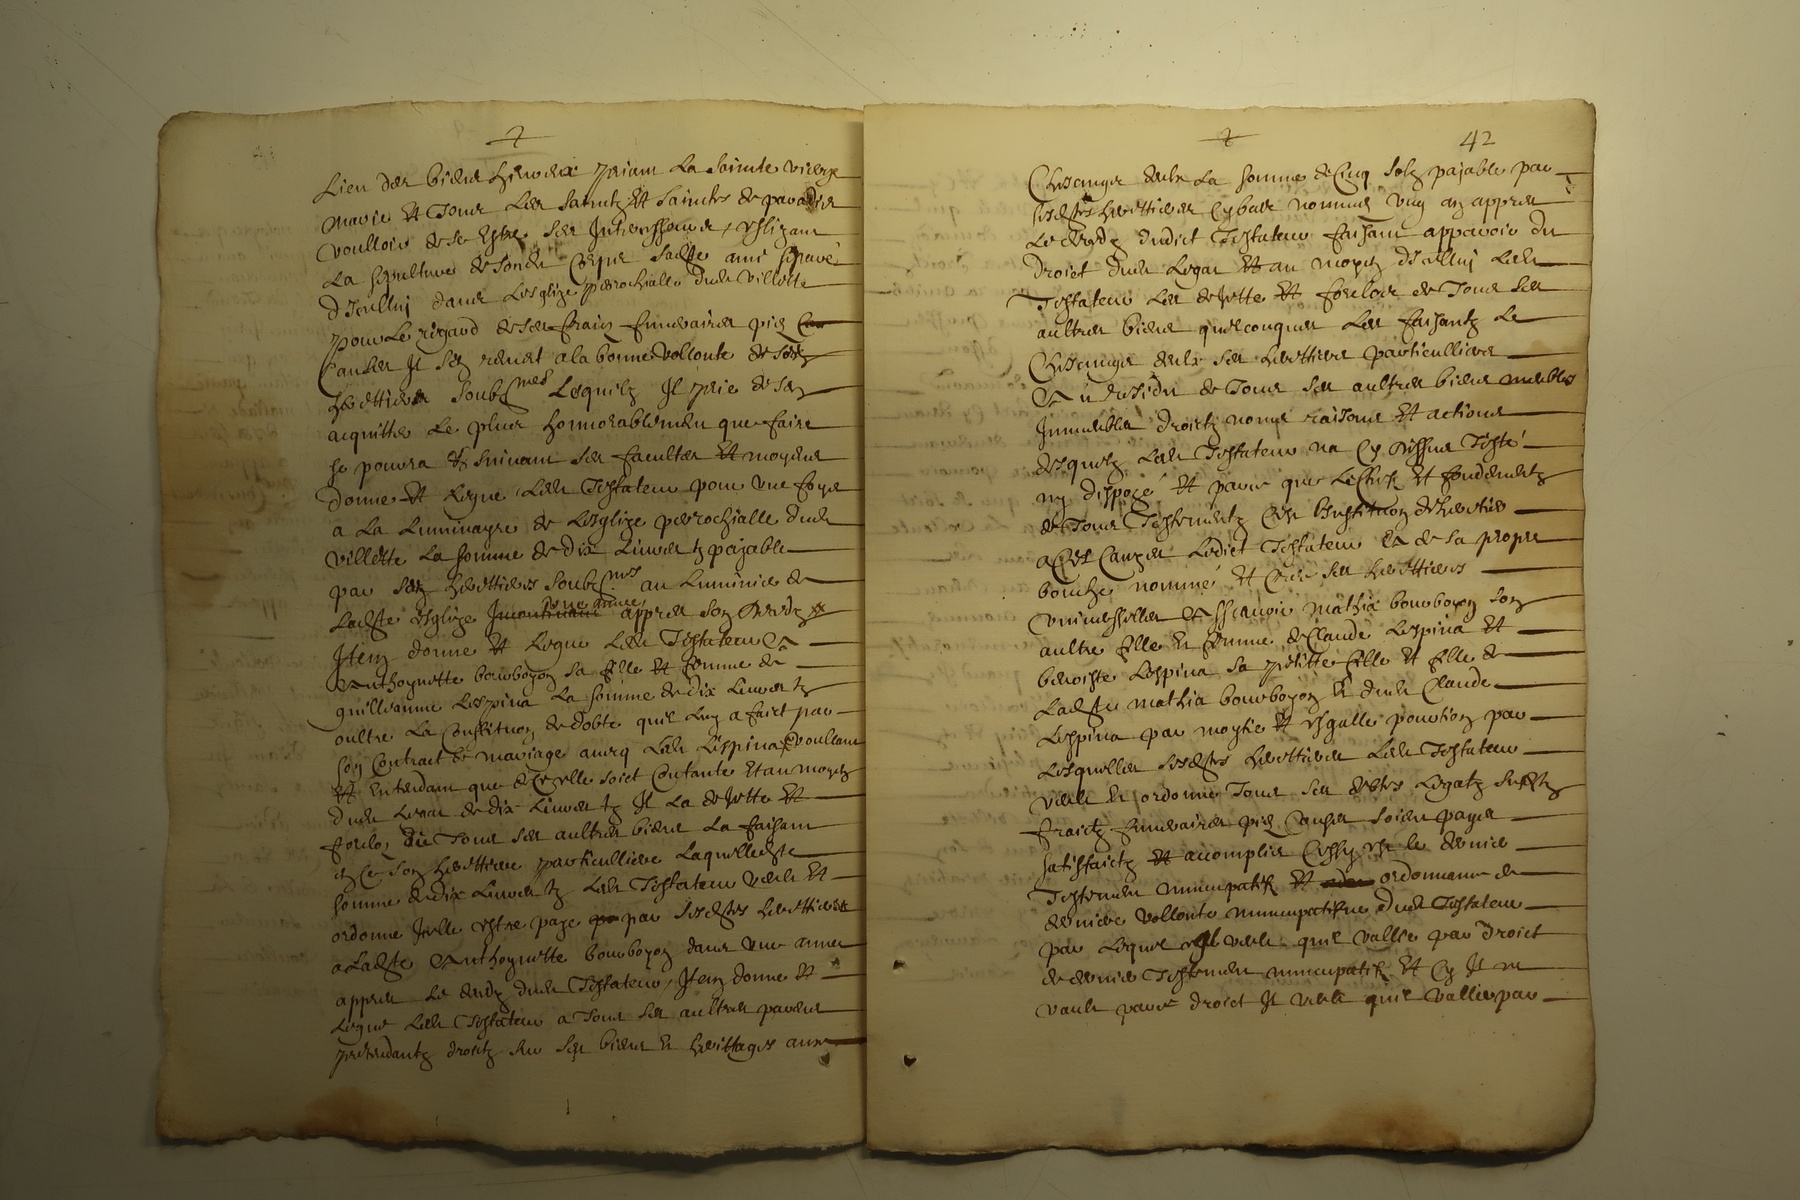 Lieu des biens heureux priant La Sainte vierge
Marie Et Tous Les Saintz Et Sainctes de paradis
voulloir de se Estre ses Intersseurs, Eslizant
La sepulture de sondit Corps
d'Icelluy dans Lesglize parrochialle dud villette
pour Le regard de ses fraiz funeraires pies
Causes Il sen remet a la bonne vollonte de sesd
herettiers soubz nés Lesquelz Il prie de sen
acquitter Le plus honnorablement que faire
se pourra Et suivant ses facultes Et moyens
donne Et Legue Led Testateur pour une foys
a La Luminayre de Lesglize parrochialle dud
villette La somme de dix Livres tz payable
par sesd herettiers soubz nés au Luminier de
Ladte Esglize une annee appres son decedz
Item donne Et Legue Led Testateur A
Anthoynette bourboyon sa fille Et femme de
guillaume Lespina La somme de dix Livres tz
oultre La Constitution de dobte quil Luy a faict par
son Contract de mariage avecq Led Lespina voullant
Et Entendant que dicelle soict Contante Et au moyen
dud Legat de dix Livres tz Il La dejette Et
forclos de Tous ses aultres biens La faisant
en Ce son herettiere particulliere Laquelle dte
somme de dix Livres tz Led Testateur veult Et
ordonne Icelle Estre paye par sesdtes herettiers
a Ladte Anthoynette bourboyon dans une annee
appres Le decedz dud Testateur, Item donne Et
Legue Led Testateur a Tous ses aultres parans
pretendantz droictz sur ses biens Et herittages
42
Chascungs deulx La somme de Cinq solz payable par
sesdtes herettiers Cybas nommes ung an appres
Le decedz dudict Testateur faisant apparoir du
droict dud Legat Et au moyen d'Icelluy Led
Testateur Les dejette Et forclos de Tous ses
aultres biens quelconques Les faisantz Le
Chascungs deulx ses herettiers particulliers
Au residu de Tous ses aultres biens meubles
Immeubles droictz noms raisons Et actions
desquelz Led Testateur na Cy dessus Testé
ny dispozé Et parce que Leffect Et fondementz
de Tous Testementz Est Linstitution dherettier
a Ces Cauzes Ledict Testateur de sa propre
bouche nommé Et Crée ses herettiers
universselles Asscavoir mathia bourboyon son
aultre fille Et femme de Claude Lespina Et
benoiste Lespina sa petitte fille Et fille de
Ladte mathia bourboyon Et dud Claude
Lespina par moytie Et Esgalle pourtion par
Lesquelles sesdtes herettieres Led Testateur
veult Et ordonne Tous ses dettes Legatz susdtz
fraictz funeraires pies Causes soient payes
satisfaictz Et accomplis Cessy Est le dernier
Testement nuncupatif Et ordonnance de
derniere vollonte nuncupatifve dud Testateur
par Lequel Il veult quil vallie par droict
de dernier Testement nuncupatif Et Cy Il ne
vault par Ce droict Il veult quil vallie par